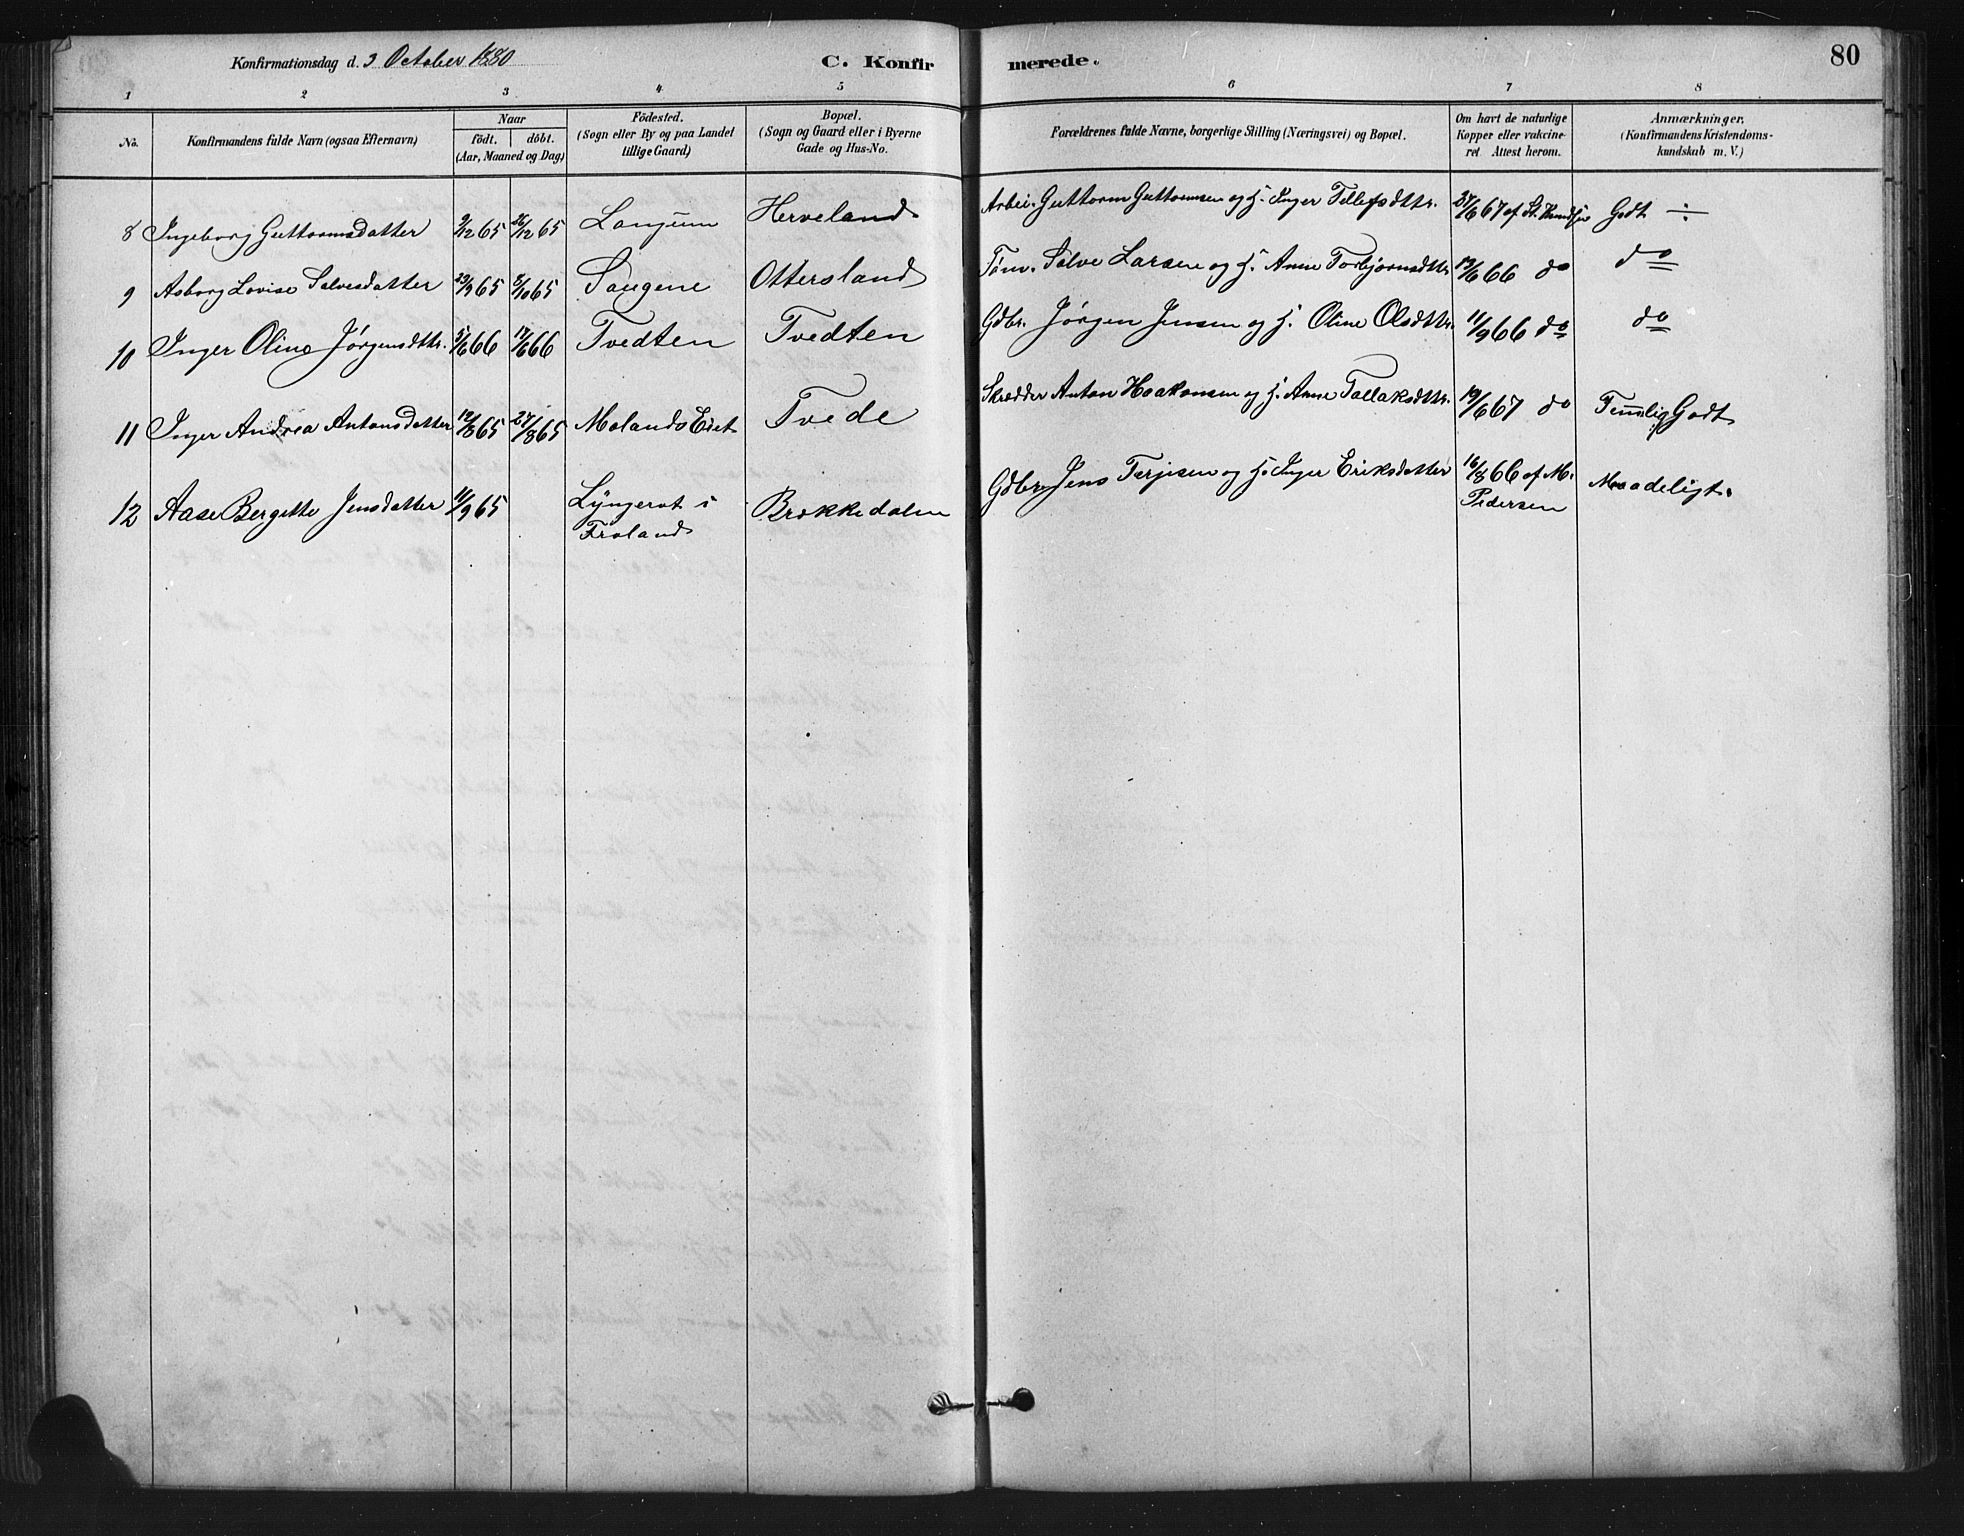 Konfirmationsdag d. 3 October 1880 C. Konfirmerede. 80
1 2 3 4 5 6 7 8
No. Konfirmandens fulde Navn (ogsaa Efternavn) Naar født. døbt. (Aar, Maaned og Dag) Fødested. (Sogn eller By og paa Landet tillige Gaard) Bopæl. (Sogn og Gaard eller i Byerne Gade og Hus-No. Forældrenes fulde Navne, borgerlige Stilling (Næringsvei) og Bopæl. Om havt de naturlige Kopper eller vakcineret. Attest herom. Anmærkninger. (Konfirmandens Kristendomskundskab m. V.)
8 Ingeborg Guttormsdatter 9/12 65 26/12 65 Langum Herveland Arbei. Guttorm Guttormsen og H. Inger Tellefsdttr. 27/6 67 af Godt ÷
9 Asborg Lovise Salvesdatter 23/9 65 8/10 65 Saugene Ottersland Tøm. Salve Larsen og H. Anne Torbjørnsdttr. 12/6 66 do do
10 Inger Oline Jørgensdttr. 5/6 66 17/6 66 Tvedten Tvedten Gdbr. Jørgen Jensen og H. Oline Olsdttr. 11/9 66 do do
11 Inger Andrea Antonsdatter 12/8 65 27/8 65 Molands Eiet Tvede Skrædder Anton Haakonsen og H. Anne Tallaksdttr. 19/6 67 do Temmelig Godt
12 Aase Bergitte Jensdatter 11/9 65 Lyngerot i Froland Brekkedalen Gdbr. Jens Terjesen og H. Inger Eriksdatter 16/8 66 af M. Pedersen Maadeligt.